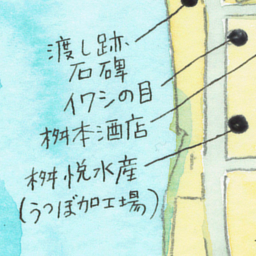 渡し跡
石碑
イワシの目
桝本酒店
桝悦水産
(うつぼ加工場)